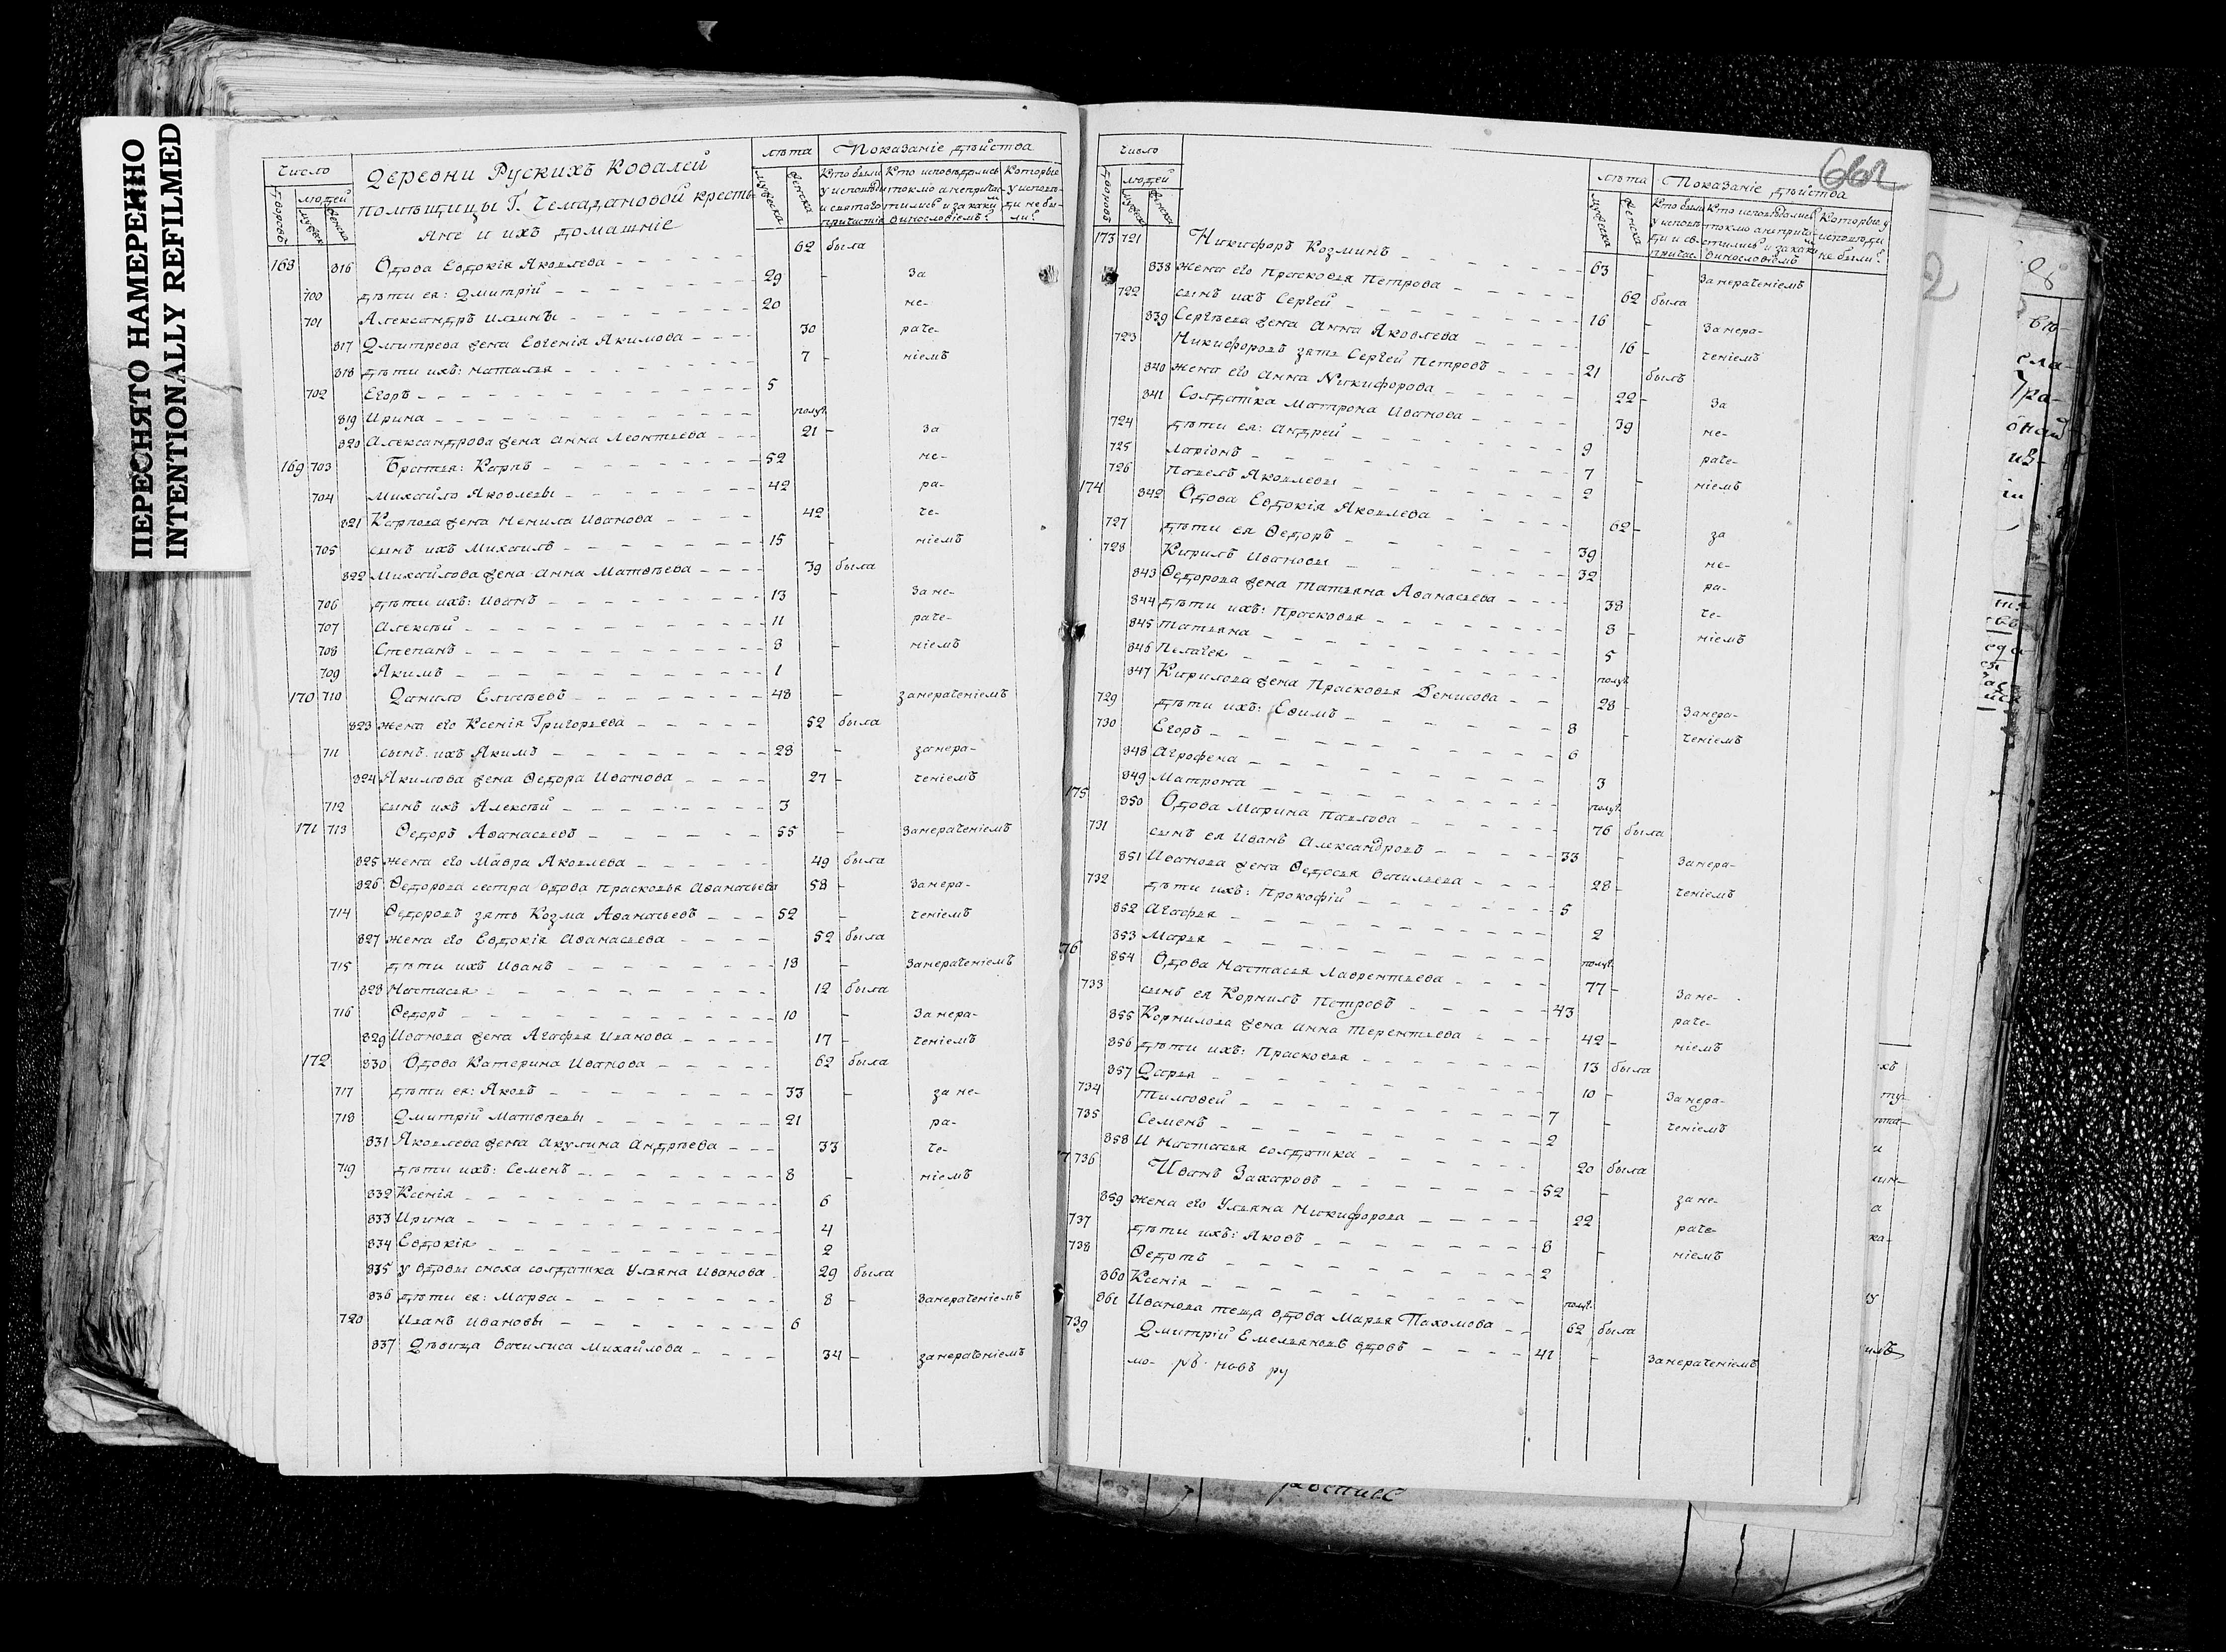 ПЕРЕСНЯТО НАМЕРЕННО
INTENTIONALLY REFILMED
число
людей
дворовъ
мужеска
женска
Деревни Рускихъ Ковалей
помѣщицы Г. Чемадановой кресть
яне и ихъ домашніе
лѣта
мужеска
женска
Показаніе дѣйства
Кто были Кто исповѣдались Которые
168 816 Вдова Евдокія Яковлева 62 была
700 дѣти ея: Дмитрій 29 - За
701 Александръ Ильины 20 не-
817 Дмитрева жена Евгенія Якимова 30 раче-
818 дѣти ихъ: Наталья 7 - ніемъ
702 Егоръ 5
819 Ирина полуг.
820 Александрова жена Анна Леонтьева 21 - За
169 703 Братья: Карпъ 52 не-
704 Михайло Яковлевы 42 ра-
821 Карпова жена Ненила Иванова 42 че-
705 сынъ ихъ Михаилъ 15 - ніемъ
822 Михайлова жена Анна Матвѣева 39 была
706 дѣти ихъ: Иванъ 13 - За не-
707 Алексѣй 11 - раче-
708 Степанъ 8 - ніемъ
709 Якимъ 1
170 710 Данило Елисѣевъ 48 - занераченіемъ
823 жена его Ксенія Григорьева 52 была
711 сынъ ихъ Якимъ 28 - занера-
824 Якимова жена Ѳедора Иванова 27 - ченіемъ
712 сынъ ихъ Алексѣй 3
171 713 Ѳедоръ Аѳанасьевъ 55 - Занераченіемъ
825 жена его Мавра Яковлева 49 была
826 Ѳедорова сестра вдова Прасковья Аѳанасьева 58 - Занера-
714 Ѳедоровъ зять Козма Аѳанасьевъ 52 - ченіемъ
827 жена его Евдокія Аѳанасьева 52 была
715 дѣти ихъ Иванъ 18 - Занераченіемъ
828 Настасья 12 была
716 Ѳедоръ 10 - Занера-
829 Иванова жена Агафья Иванова 17 - ченіемъ
172 830 Вдова Катерина Иванова 62 была
717 дѣти ея: Яковъ 33 - за не-
718 Дмитрій Матвѣевы 21 ра-
831 Яковлева жена Акулина Андрѣева 33 че-
719 дѣти ихъ: Семенъ 8 - ніемъ
832 Ксенія 6
833 Ирина 4
834 Евдокія 2
835 у вдовы сноха солдатка Ульяна Иванова 29 была
836 дѣти ея: Марѳа 8 - Занераченіемъ
720 Иванъ Ивановы 6
837 Дѣвица Василиса Михайлова 34 - занераченіемъ
662
число
людей
дворовъ
мужеска
женска
лѣта
мужеска
женска
Показаніе дѣйства
173 721 Никифоръ Козминъ 63 - Занераченіемъ
838 жена его Прасковья Петрова 62 была
722 сынъ ихъ Сергей 16 - Занера-
839 Сергѣева жена Анна Яковлева 16 - ченіемъ
723 Никифоровъ зять Сергей Петровъ 21 былъ
840 жена его Анна Никифорова 22 - За
841 Солдатка Матрона Иванова 39 не-
724 дѣти ея: Андрей 9 раче-
725 Ларіонъ 7 - ніемъ
726 Павелъ Яковлевы 2
174 842 Вдова Евдокія Яковлева 62 - за
727 дѣти ея Ѳедоръ 39 не-
728 Кирилъ Ивановы 32 ра-
843 Ѳедорова жена Татьяна Аѳанасьева 38 че-
844 дѣти ихъ: Прасковья 8 - ніемъ
845 Татьяна 5
846 Пелагея полуг.
847 Кирилова жена Прасковья Денисова 28 - Занера-
729 дѣти ихъ: Ефимъ 8 - ченіемъ
730 Егоръ 6
848 Агрофена 3
849 Матрона полуг.
175 850 Вдова Марина Павлова 76 была
731 сынъ ея Иванъ Александровъ 33 - Занера-
851 Иванова жена Ѳедосья Васильева 28 - ченіемъ
732 дѣти ихъ: Прокофій 5
852 Агафья 2
853 Марья полуг.
176 854 Вдова Настасья Лаврентьева 77 - Зане-
733 сынъ ея Корнилъ Петровъ 43 раче-
855 Корнилова жена Анна Терентьева 42 - ніемъ
856 дѣти ихъ: Прасковья 13 была
857 Дарья 10 - Занера-
734 Тимофей 7 - ченіемъ
735 Семенъ 2
858 И Настасья солдатка 20 была
7 736 Иванъ Захаровъ 52 - зане-
859 жена его Ульяна Никифорова 22 раче-
737 дѣти ихъ: Яковъ 8 - ніемъ
738 Ѳедотъ 2
860 Ксенія полуг.
861 Иванова теща вдова Марья Пахомова 62 была
739 Дмитрій Емельяновъ вдовъ 41 - Занераченіемъ